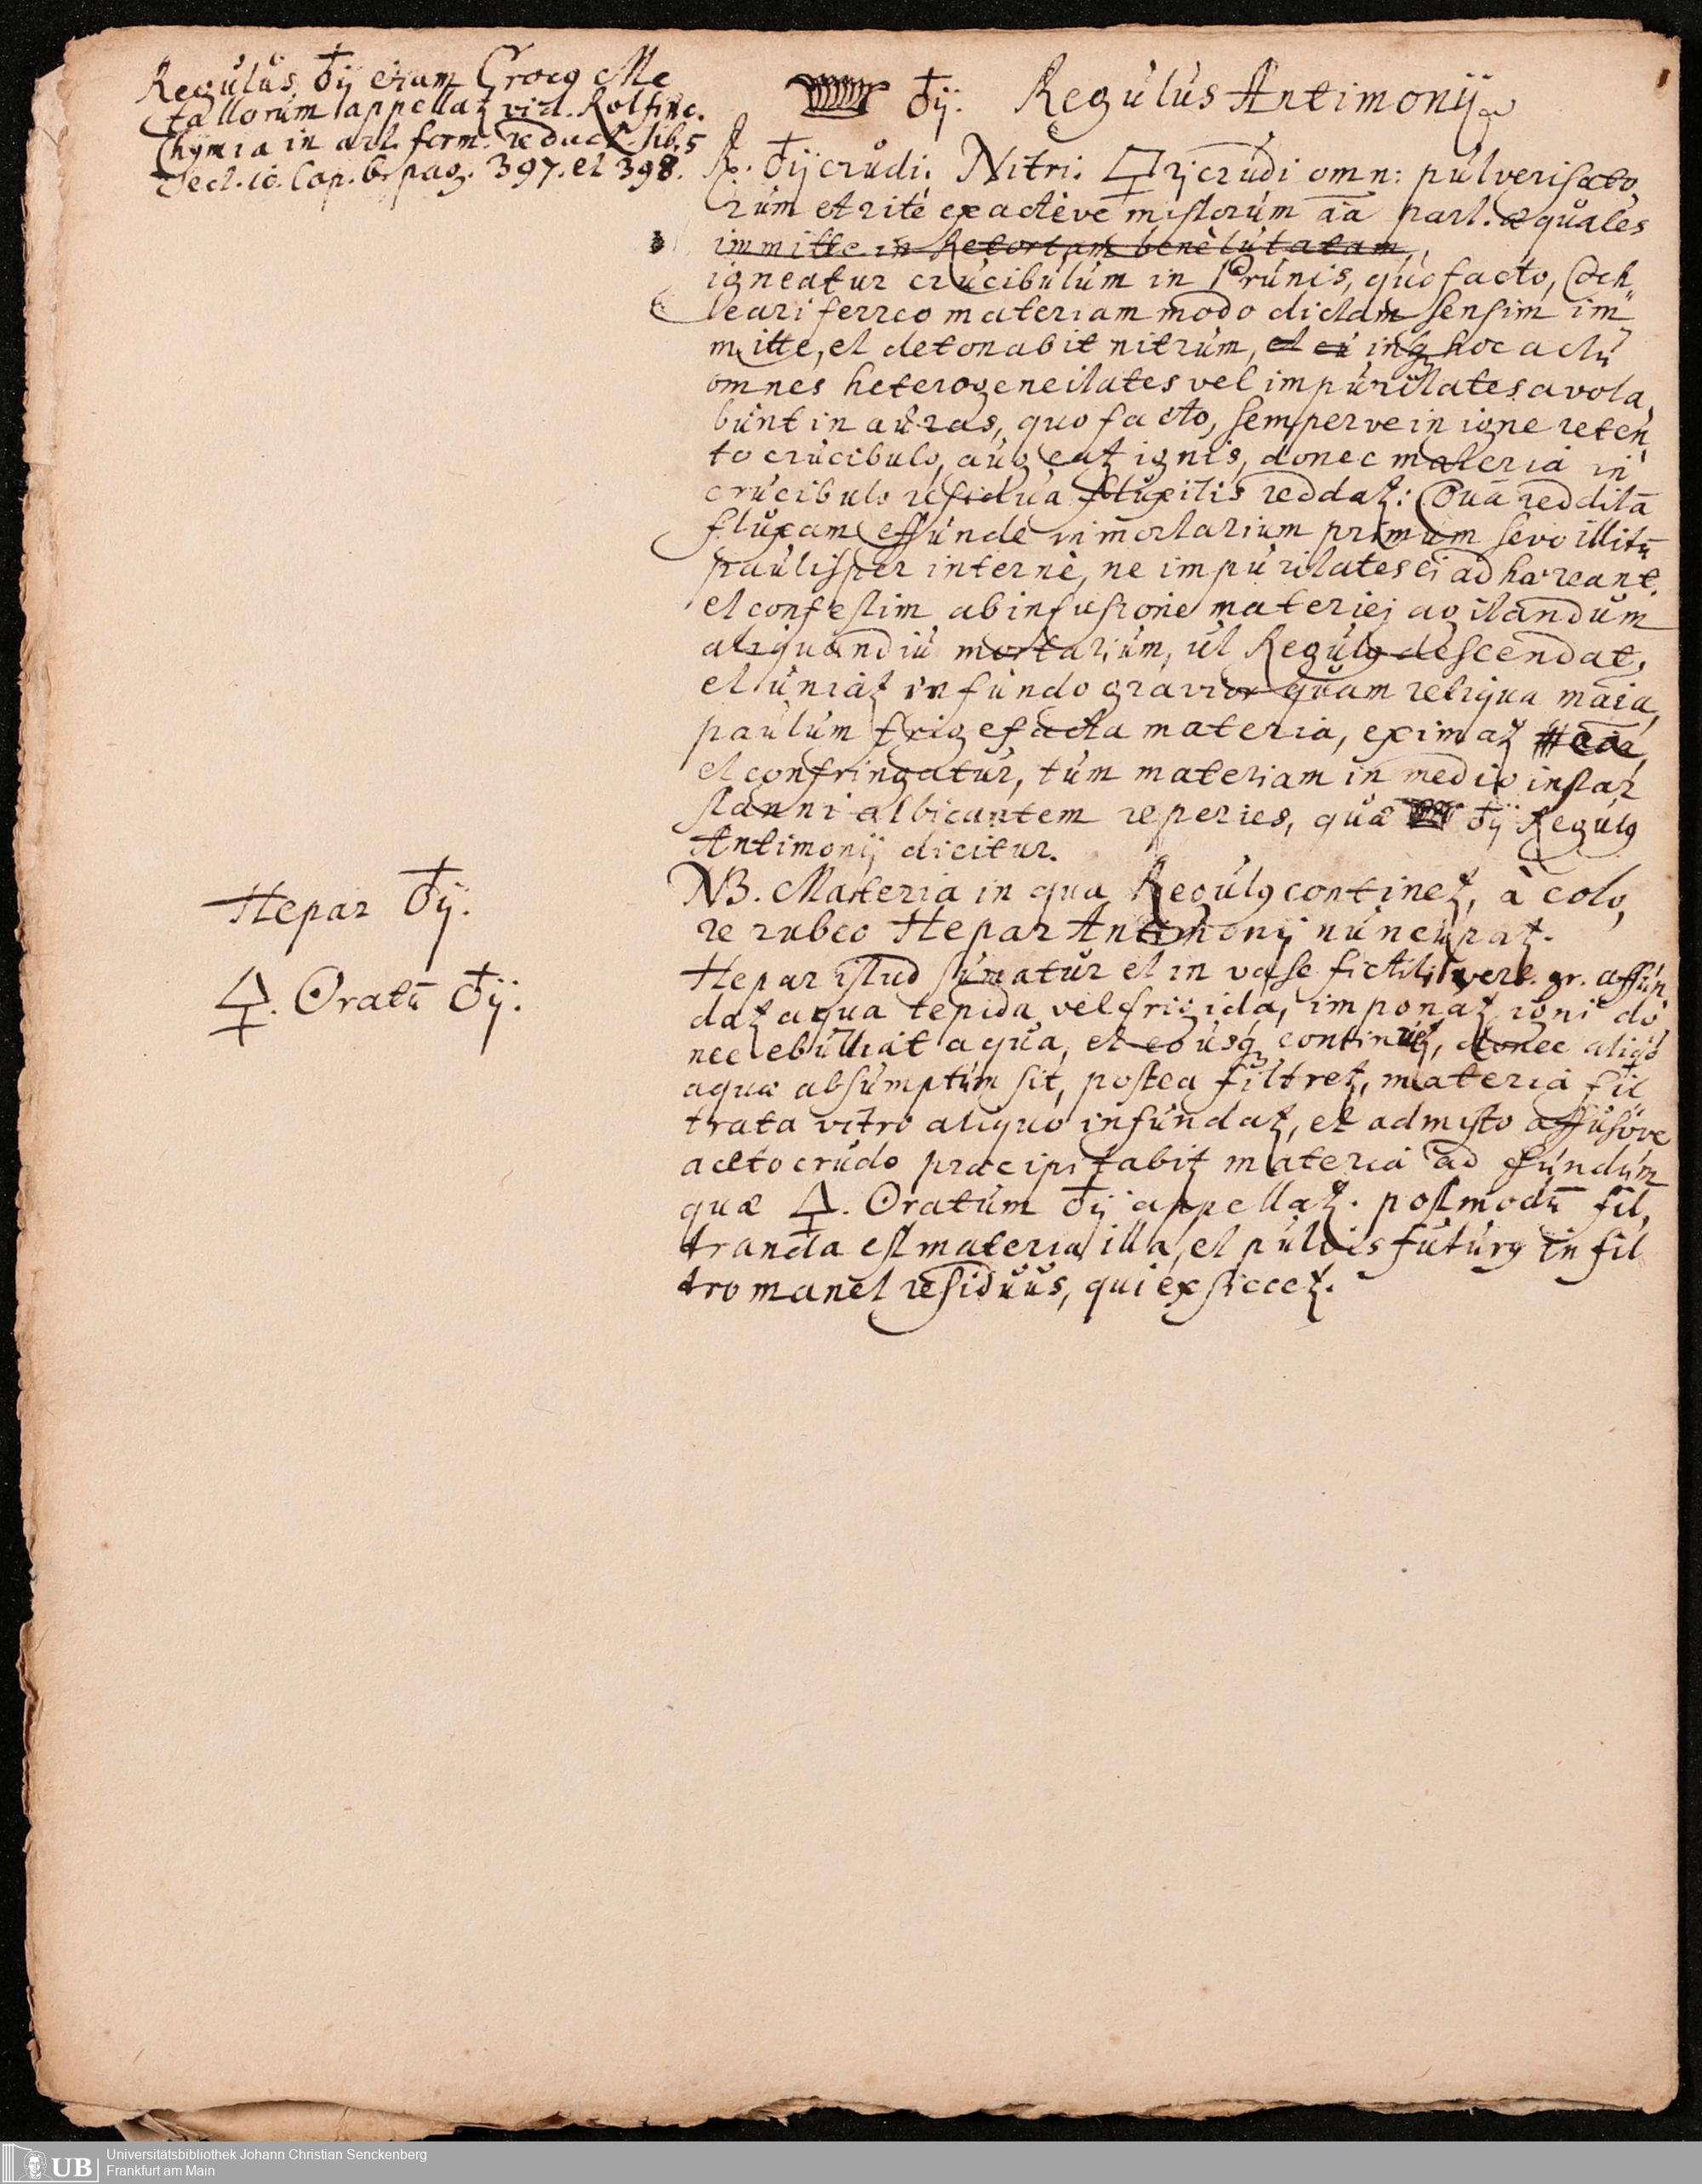 Regulus ♁ij etiam Crocꝰ Me
tallorum appellatꝫ vid. Rolfinc.
Chymia in art. form. reduct. lib. 5
Sect. 10. Cap. 6. pag. 397. et 398.
♁ij. Regulus Antimonij
℞. ♁ij crudi. Nitri. 🜿rj crudi omn: pulverisato,
rum et rité exactéve mistorum āa part. æquales
immitte in Retortam benè lutatam,
igneatur crucibulum in Prunis, quo facto, Coch„
leari ferreo materiam modo dictam sensim im
mitte, et detonabit nitrum, hoc actu
omnes heterogeneitates vel impuritates avola,
bunt in auras, quo facto, semperve in igne reten,
to crucibulo, augeatꝫ ignis, donec materia in
crucibulo residua fluxilis reddatꝫ: Quā redditā
fluxam effunde in mortarium primum sevo illitū
paulisper internè, ne impuritates ei adhæreant.
et confestim ab infusione materiei agitandum
aliquandiu mortarium, ut Regulꝰ descendat,
et uniatꝫ in fundo gravior quam reliqua māia,
paulum frigefacta materia, eximatꝫ ea,
et confringatur, tum materiam in medio instar
stanni albicantem reperies, quæ ♁ij Regulꝰ
Antimonij dicitur.
Hepar ♁ij.
NB. Materia in qua Regulꝰ continetꝫ, à colo,
re rubeo Hepar Antimonij nuncupatꝫ.
🜍. Oratū ♁ij.
Hepar istud sumatur et in vase fictili verb. gr. affun
datꝫ aqua tepida vel frigida, imponatꝫ igni do
nec ebulliat aqua, et eo usqꝫ continuetꝫ, donec aliqd
aquæ absumptum sit, postea filtretꝫ, materia fil
trata vitro aliquo infundatꝫ, et admisto affusove
aceto crudo præcipitabitꝫ materia ad fundum
quæ 🜍. Oratum ♁ij appellatꝫ. postmodū fil,
tranda est materia illa, et pulvis futurꝰ in fil
tro manet residuus, qui exsiccetꝫ.
UB
Universitätsbibliothek Johann Christian Senckenberg
Frankfurt am Main